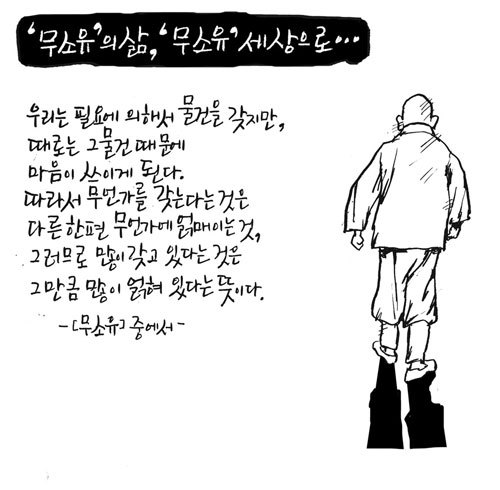 '무소유'의 삶, '무소유' 세상으로...
우리는 필요에 의해서 물건을 갖지만,
때로는 그 물건 때문에
마음이 쓰이게 된다.
따라서 무언가를 갖는다는 것은
다른 한편 무언가에 얽매이는 것,
그러므로 많이 갖고 있다는 것은
그만큼 많이 얽혀 있다는 뜻이다.
-[무소유] 중에서-